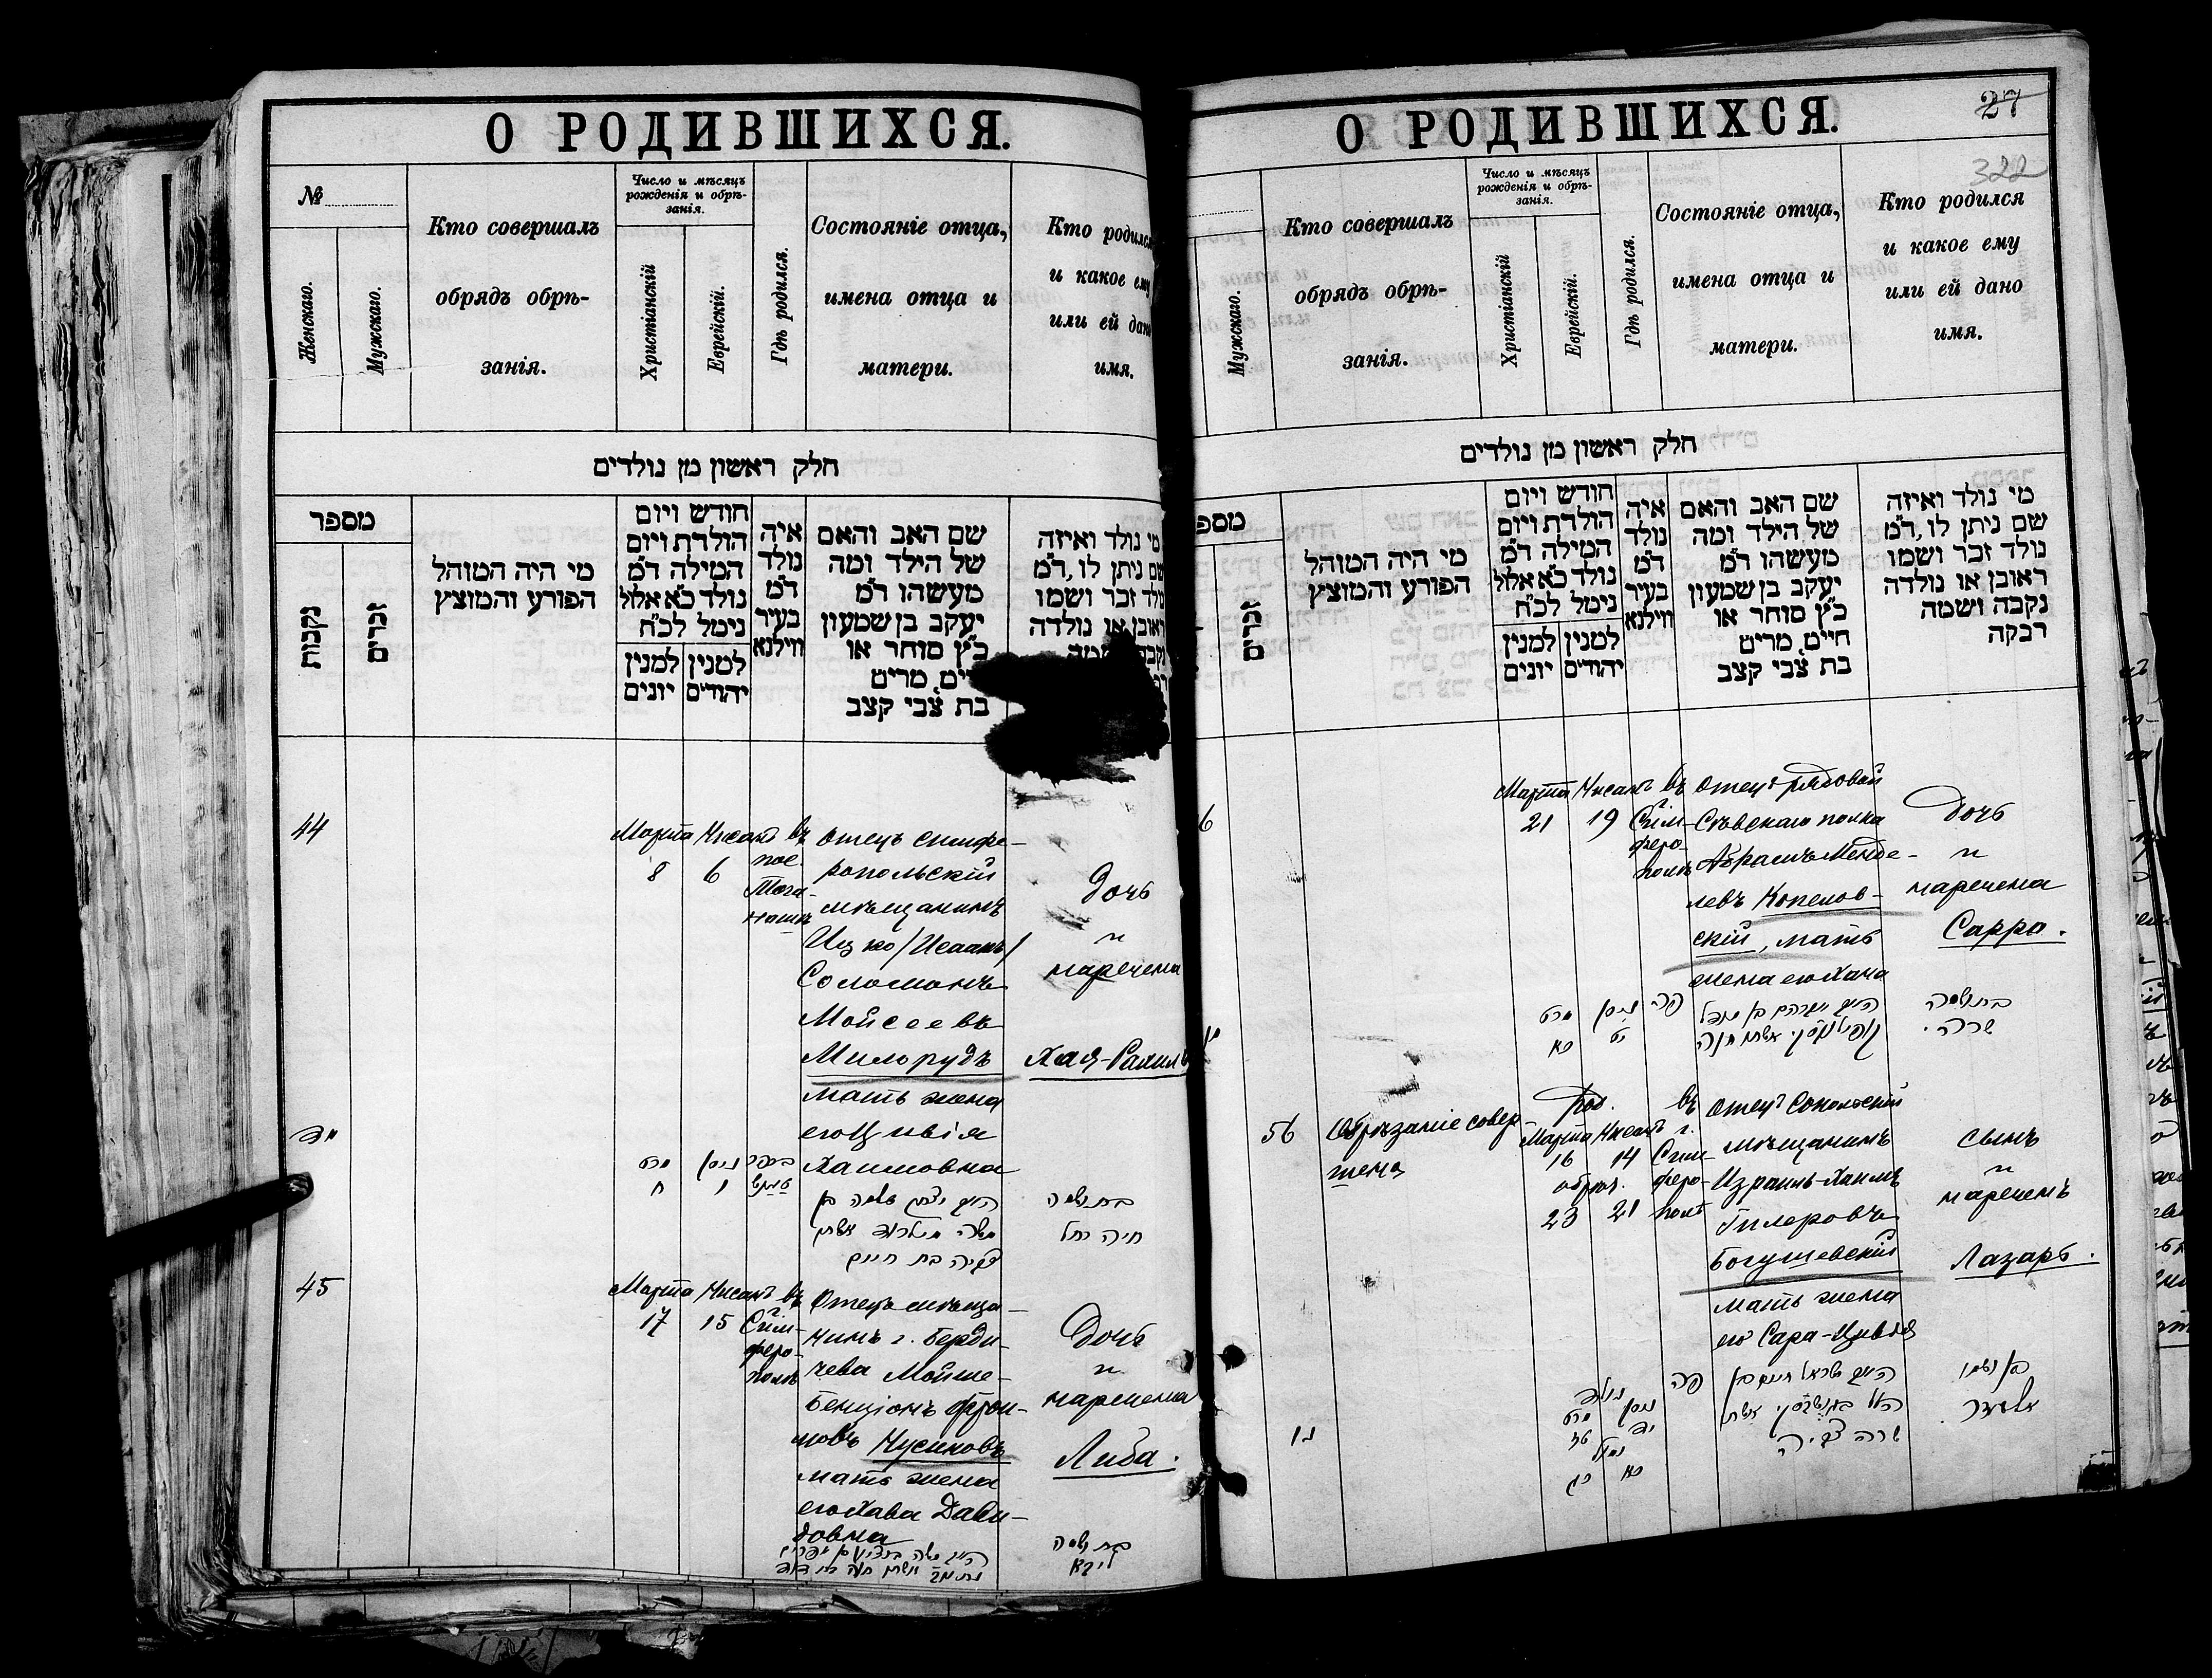 О РОДИВШИХСЯ.
№
Женскаго.
Мужскаго.
Кто совершалъ
обрядъ обрѣ-
занія.
Число и мѣсяцъ
рожденія и обрѣ-
занія.
Христіанскій
Еврейскій.
Гдѣ родился.
Состояніе отца,
имена отца и
матери.
Кто родился
и какое ему
или ей дано
имя.
חלק ראשון מן נולדים
מספר
נקבות
זכרים
מי היה המוהל
הפורע והמוצץ
חודש ויום
הולדת ויום
המילה ד"מ
נולד כ"א אלול
נימל לכ"ח
למנין יונים
למנין יהודים
איה
נולד
ד"מ
בעיר
ווילנא
שם האב והאם
של הילד ומה
מעשהו ד"מ
יעקב בן שמעון
כ"ץ סוחר או
חיים, מרים
בת צבי קצב
מי נולד ואיזה
שם ניתן לו, ד"מ
נולד זכר ושמו
ראובן או נולדה
44
Марта
8
Нисанъ
6
въ
пос.
Отецъ симфе-
ропольскій
мѣщанинъ
Ицко /Исаакъ/
Соломонъ
Мойсеевъ
Милорудъ
мать жена
его Цивія
Хаимовна
Дочь
и
наречена
Хая-Рахиль
מרט
ח
ניסן
ו
הא׳ יצחק שלמה בן
משה מילרוד אשתו
צביה בת חיים
בת ושמה
חיה רחל
45
Марта
17
Нисанъ
15
въ
г.
Сим-
феро-
полѣ
Отецъ мѣща-
нинъ г. Берди-
чева Мойше-
Бенціонъ
Нусиновъ
мать жена
его Хава Дави-
довна
Дочь
и
наречена
Либа.
בת ושמה
ליבא
О РОДИВШИХСЯ.
27
322
Мужскаго.
Кто совершалъ
обрядъ обрѣ-
занія.
Число и мѣсяцъ
рожденія и обрѣ-
занія.
Христіанскій
Еврейскій.
Гдѣ родился.
Состояніе отца,
имена отца и
матери.
Кто родился
и какое ему
или ей дано
имя.
חלק ראשון מן נולדים
זכרים
מי היה המוהל
הפורע והמוצץ
חודש ויום
הולדת ויום
המילה ד"מ
נולד כ"א אלול
נימל לכ"ח
למנין יונים
למנין יהודים
איה
נולד
ד"מ
בעיר
ווילנא
שם האב והאם
של הילד ומה
מעשהו ד"מ
יעקב בן שמעון
כ"ץ סוחר או
חיים, מרים
בת צבי קצב
מי נולד ואיזה
שם ניתן לו, ד"מ
נולד זכר ושמו
ראובן או נולדה
נקבה ושמה
רבקה
6
Марта
21
Нисанъ
19
въ
г.
Сим-
феро-
полѣ
Отецъ рядовой
Сѣвскаго полка
Абрамъ Менде-
левъ Копелов-
скій, мать
жена его Хана
Дочь
и
наречена
Сарра.
מרט
כא
ניסן
יט
פה
בת ושמה
שרה.
56
Обрѣзаніе совер-
шено
Род.
Марта
16
Нисанъ
14
обрѣз.
23
21
въ
г.
Сим-
феро-
полѣ
Отецъ Сокольскій
мѣщанинъ
Израиль-Хаимъ
Гилеровъ
Богушевскій
мать жена
его Сара-Цивья
Сынъ
и
нареченъ
Лазарь.
נו
נולד
מרט
טז
ניסן
יד
נימל
כג
כא
פה
הא׳ ישראל חיים בן
הלל באגושעווסקי אשתו
שרה צביה
בן ושמו
אליעזר.